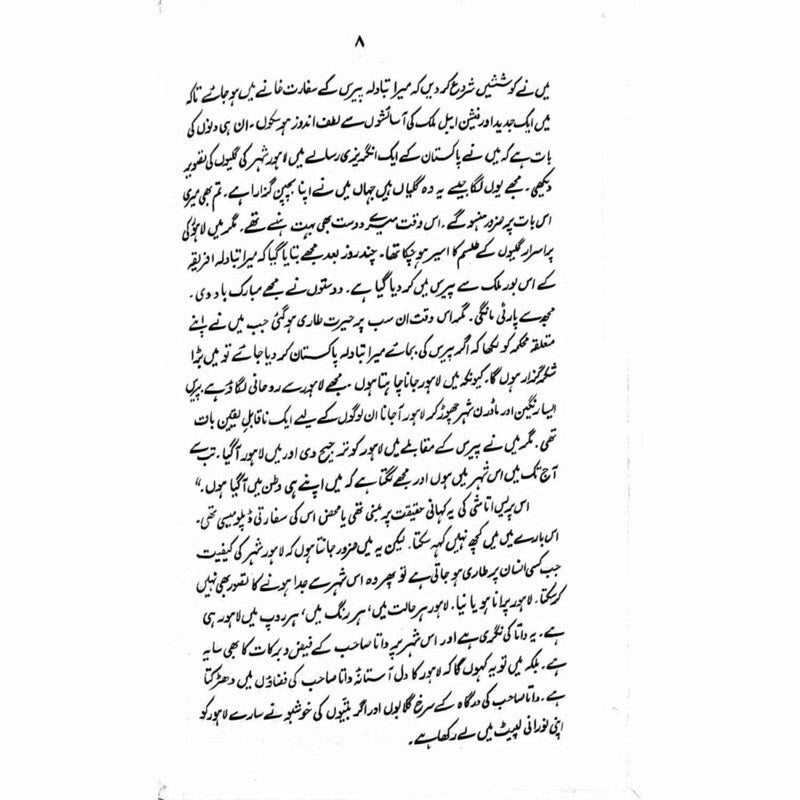 ۸
میں نے کوششیں شروع کر دیں کہ میرا تبادلہ پیرس کے سفارت خانے میں ہو جائے تاکہ
میں ایک جدید اور فیشن ایبل ملک کی آسائشوں سے لطف اندوز ہو سکوں۔ ان ہی دنوں کی
بات ہے کہ میں نے پاکستان کے ایک انگریزی رسالے میں لاہور شہر کی گلیوں کی تصویر
دیکھی۔ مجھے یوں لگا جیسے یہ وہ گلیاں ہیں جہاں میں نے اپنا بچپن گذارا ہے۔ تم بھی میری
اس بات پر ضرور ہنسو گے۔ اس وقت میرے دوست بھی بہت ہنسے تھے۔ مگر میں لاہور کی
پراسرار گلیوں کے طلسم کا اسیر ہو چکا تھا۔ چند روز بعد مجھے بتایا گیا کہ میرا تبادلہ افریقہ
کے اس بور ملک سے پیرس میں کر دیا گیا ہے۔ دوستوں نے مجھے مبارک باد دی۔
مجھ سے پارٹی مانگی۔ مگر اس وقت ان سب پر حیرت طاری ہو گئی جب میں نے اپنے
متعلقہ محکمہ کو لکھا کہ اگر پیرس کی بجائے میرا تبادلہ پاکستان کر دیا جائے تو میں بڑا
شکر گزار ہوں گا۔ کیونکہ میں لاہور جانا چاہتا ہوں۔ مجھے لاہور سے روحانی لگاؤ ہے پیرس
ایسا رنگین اور ماڈرن شہر چھوڑ کر لاہور آجانا ان لوگوں کے لیے ایک ناقابلِ یقین بات
تھی۔ مگر میں نے پیرس کے مقابلے میں لاہور کو ترجیح دی اور میں لاہور آ گیا۔ تب سے
آج تک میں اس شہر میں ہوں اور مجھے لگتا ہے کہ میں اپنے ہی وطن میں آ گیا ہوں۔"
اس پریس اتاشی کی یہ کہانی حقیقت پر مبنی تھی یا محض اس کی سفارتی ڈپلومیسی تھی۔
اس بارے میں میں کچھ نہیں کہہ سکتا۔ لیکن یہ میں ضرور جانتا ہوں کہ لاہور شہر کی کیفیت
جب کسی انسان پر طاری ہو جاتی ہے تو پھر وہ اس شہر سے جدا ہونے کا تصور بھی نہیں
کر سکتا۔ لاہور پرانا ہو یا نیا۔ لاہور ہر حالت میں، ہر رنگ میں، ہر روپ میں لاہور ہی
ہے۔ یہ داتا کی نگری ہے اور اس شہر پر داتا صاحب کے فیض و برکات کا بھی سایہ
ہے۔ بلکہ میں تو یہ کہوں گا کہ لاہور کا دل آستانۂ داتا صاحب کی فضاؤں میں دھڑکتا
ہے۔ داتا صاحب کی درگاہ کے سرخ گلابوں اور اگر بتیوں کی خوشبو نے سارے لاہور کو
اپنی نورانی لپیٹ میں لے رکھا ہے۔